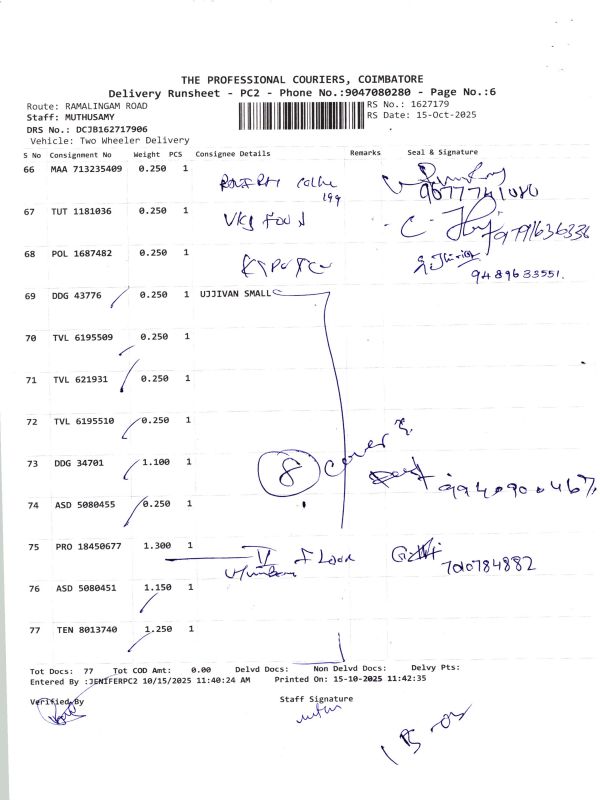 THE PROFESSIONAL COURIERS, COIMBATORE
Delivery Runsheet - PC2 - Phone No.:9047080280 - Page No.:6
Route: RAMALINGAM ROAD
Staff: MUTHUSAMY
DRS No.: DCJB162717906
Vehicle: Two Wheeler Delivery
RS No.: 1627179
RS Date: 15-Oct-2025
S No Consignment No Weight PCS Consignee Details Remarks Seal & Signature
66 MAA 713235409 0.250 1
199
67 TUT 1181036 0.250 1
9791636336
68 POL 1687482 0.250 1
9489633551.
69 DDG 43776 0.250 1 UJJIVAN SMALL
70 TVL 6195509 0.250 1
71 TVL 621931 0.250 1
72 TVL 6195510 0.250 1
73 DDG 34701 1.100 1 8 cover
74 ASD 5080455 0.250 1
75 PRO 18450677 1.300 1 V Floor
76 ASD 5080451 1.150 1
77 TEN 8013740 1.250 1
Tot Docs: 77 Tot COD Amt: 0.00 Delvd Docs: Non Delvd Docs: Delvy Pts:
Entered By :JENIFERPC2 10/15/2025 11:40:24 AM Printed On: 15-10-2025 11:42:35
Verified By Staff Signature